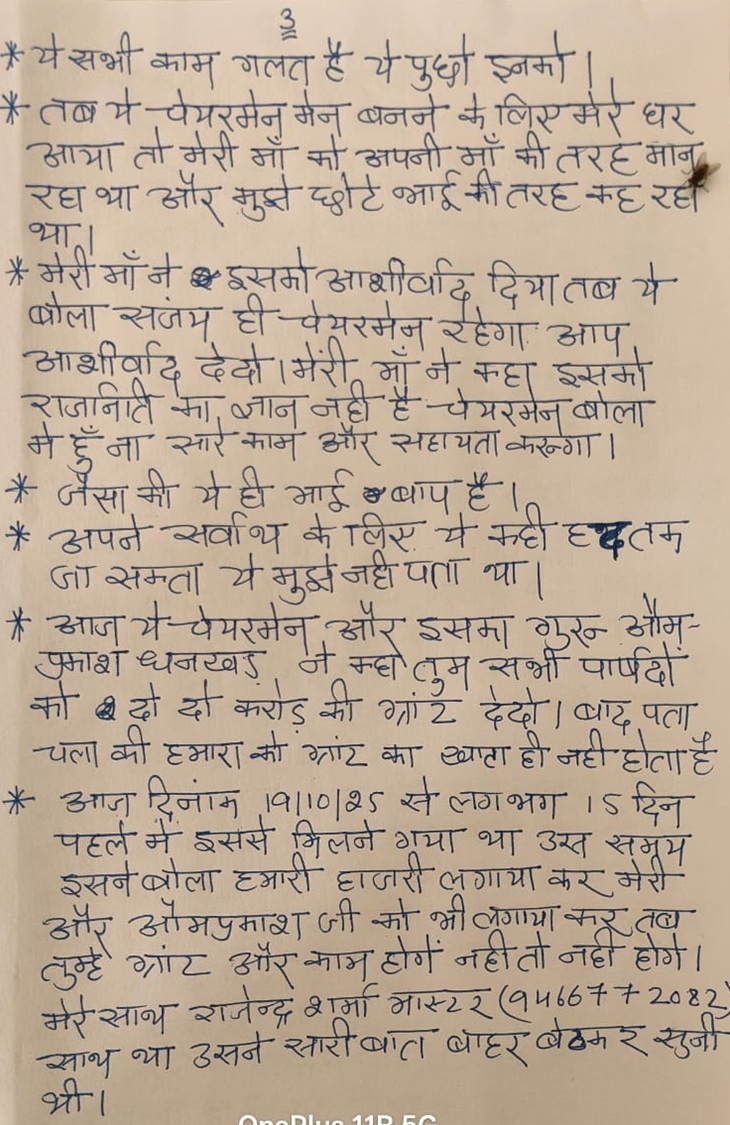 3
* ये सभी काम गलत है ये पुछो इनको।
* तब ये चेयरमेन मेन बनने के लिए मेरे घर
आया तो मेरी माँ को अपनी माँ की तरह मान
रहा था और मुझे छोटे भाई की तरह कह रहा
था।
* मेरी माँ ने इसको आशीर्वाद दिया तब ये
बोला संजय ही चेयरमेन रहेगा आप
आशीर्वाद देदो। मेरी माँ ने कहा इसको
राजनिति का ज्ञान नही है चेयरमेन बोला
मे हुँ ना सारे काम और सहायता करूगा।
* जैसा की ये ही भाई बाप है।
* अपने सर्वाथ के लिए ये कही हद तक
जा सकता ये मुझे नही पता था।
* आज ये चेयरमेन और इसका गुरू औम-
प्रकाश धनखड़ ने कहा तुम सभी पार्षदों
को दो दो करोड़ की ग्रांट देदो। बाद पता
चला की हमारा को ग्रांट का खाता ही नही होता है
* आज दिनांक 19/10/25 से लगभग 15 दिन
पहले मे इससे मिलने गया था उस समय
इसने बोला हमारी हाजरी लगाया कर मेरी
और औमप्रकाश जी को भी लगाया कर तब
तुम्हे ग्रांट और काम होगें नही तो नही होगे।
मेरे साथ राजेन्द्र शर्मा मास्टर (9466772082)
साथ था उसने सारी बात बाहर बेठकर सुनी
थी।
OnePlus 11R 5G